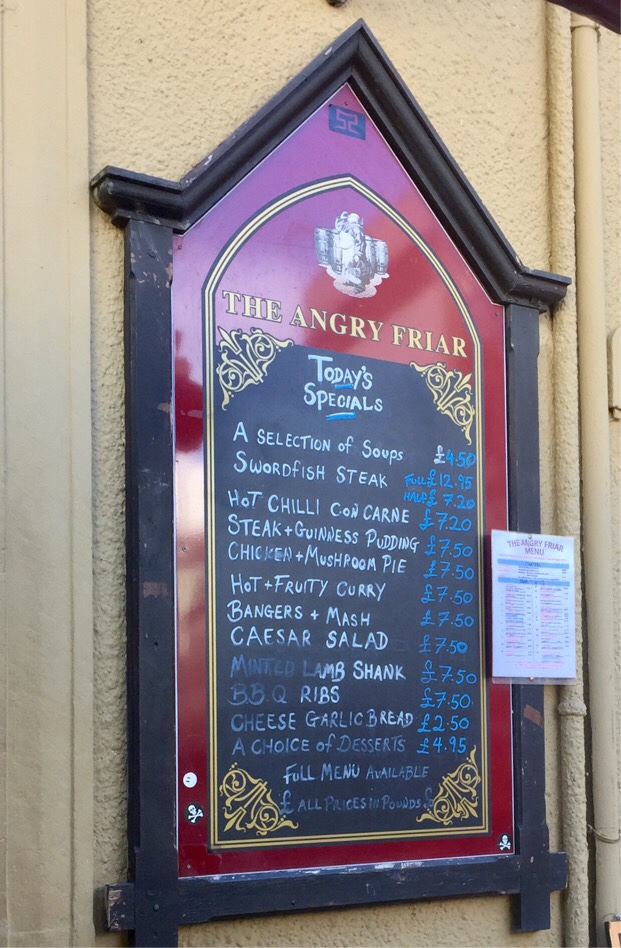 THE ANGRY FRIAR
TODAY'S
SPECIALS
A SELECTION of SOUPS £4.50
SWORDFISH STEAK FULL £12.95
HALF £7.20
HOT CHILLI CON CARNE £7.20
STEAK + GUINNESS PUDDING £7.50
CHICKEN + MUSHROOM PIE £7.50
HOT + FRUITY CURRY £7.50
BANGERS + MASH £7.50
CAESAR SALAD £7.50
MINTED LAMB SHANK £7.50
B.B.Q RIBS £7.50
CHEESE GARLIC BREAD £2.50
A CHOICE of DESSERTS £4.95
FULL MENU AVAILABLE
£ ALL PRICES IN POUNDS £
THE ANGRY FRIAR
MENU